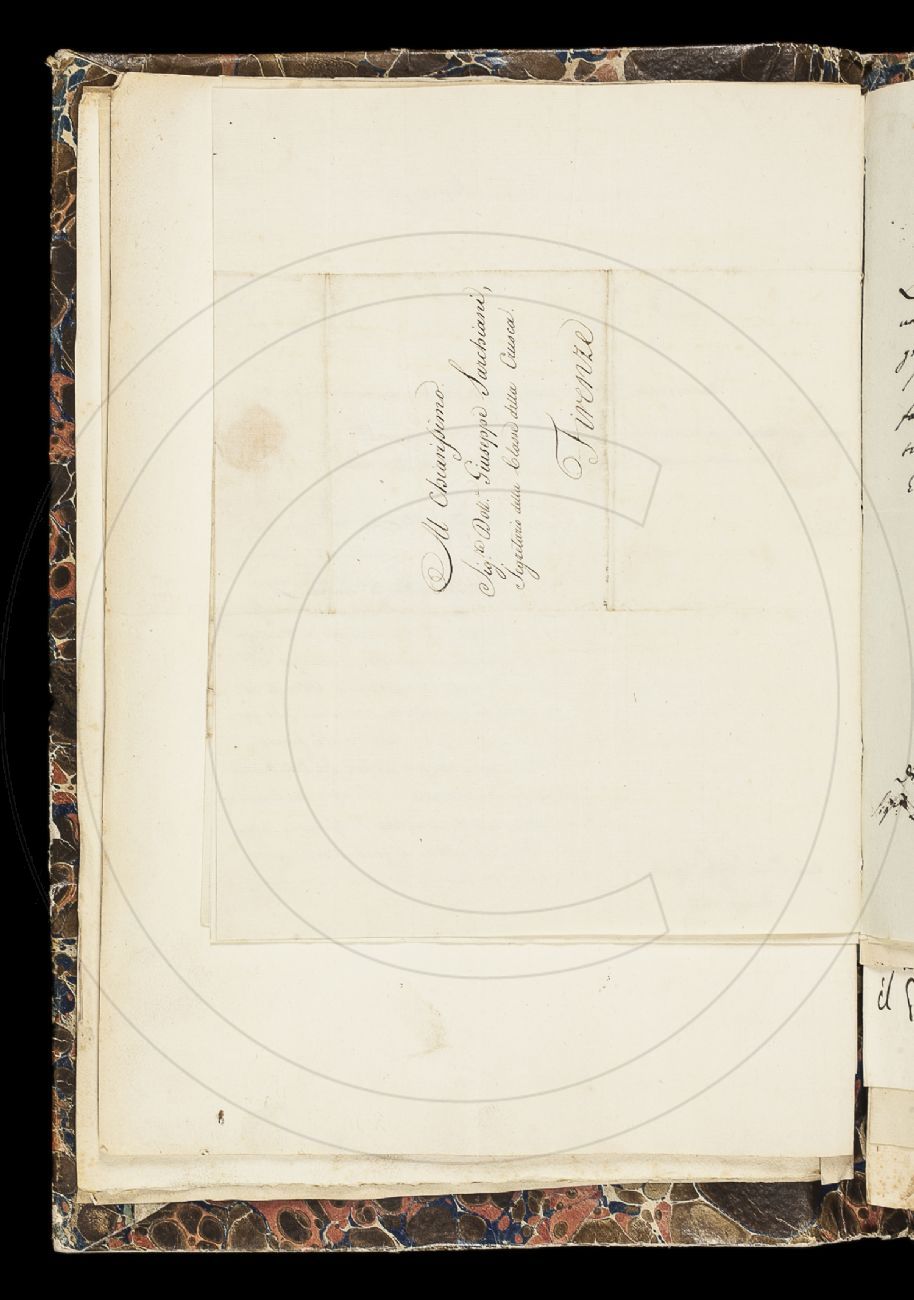 Al Chiarissimo
Sig.r Dott.r Giuseppe Sarchiani,
Segretario della Classe della Crusca.
Firenze
il